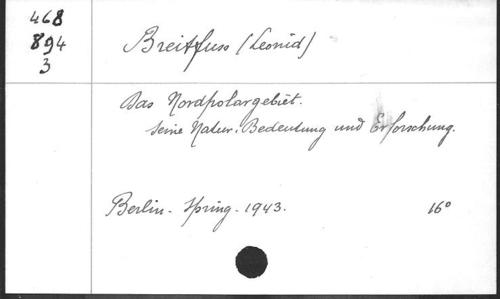 468
894
3
Breitfuss (Leonid)
Das Nordpolargebiet.
Seine Natur, Bedeutung und Erforschung.
Berlin - Spring - 1943.
16°